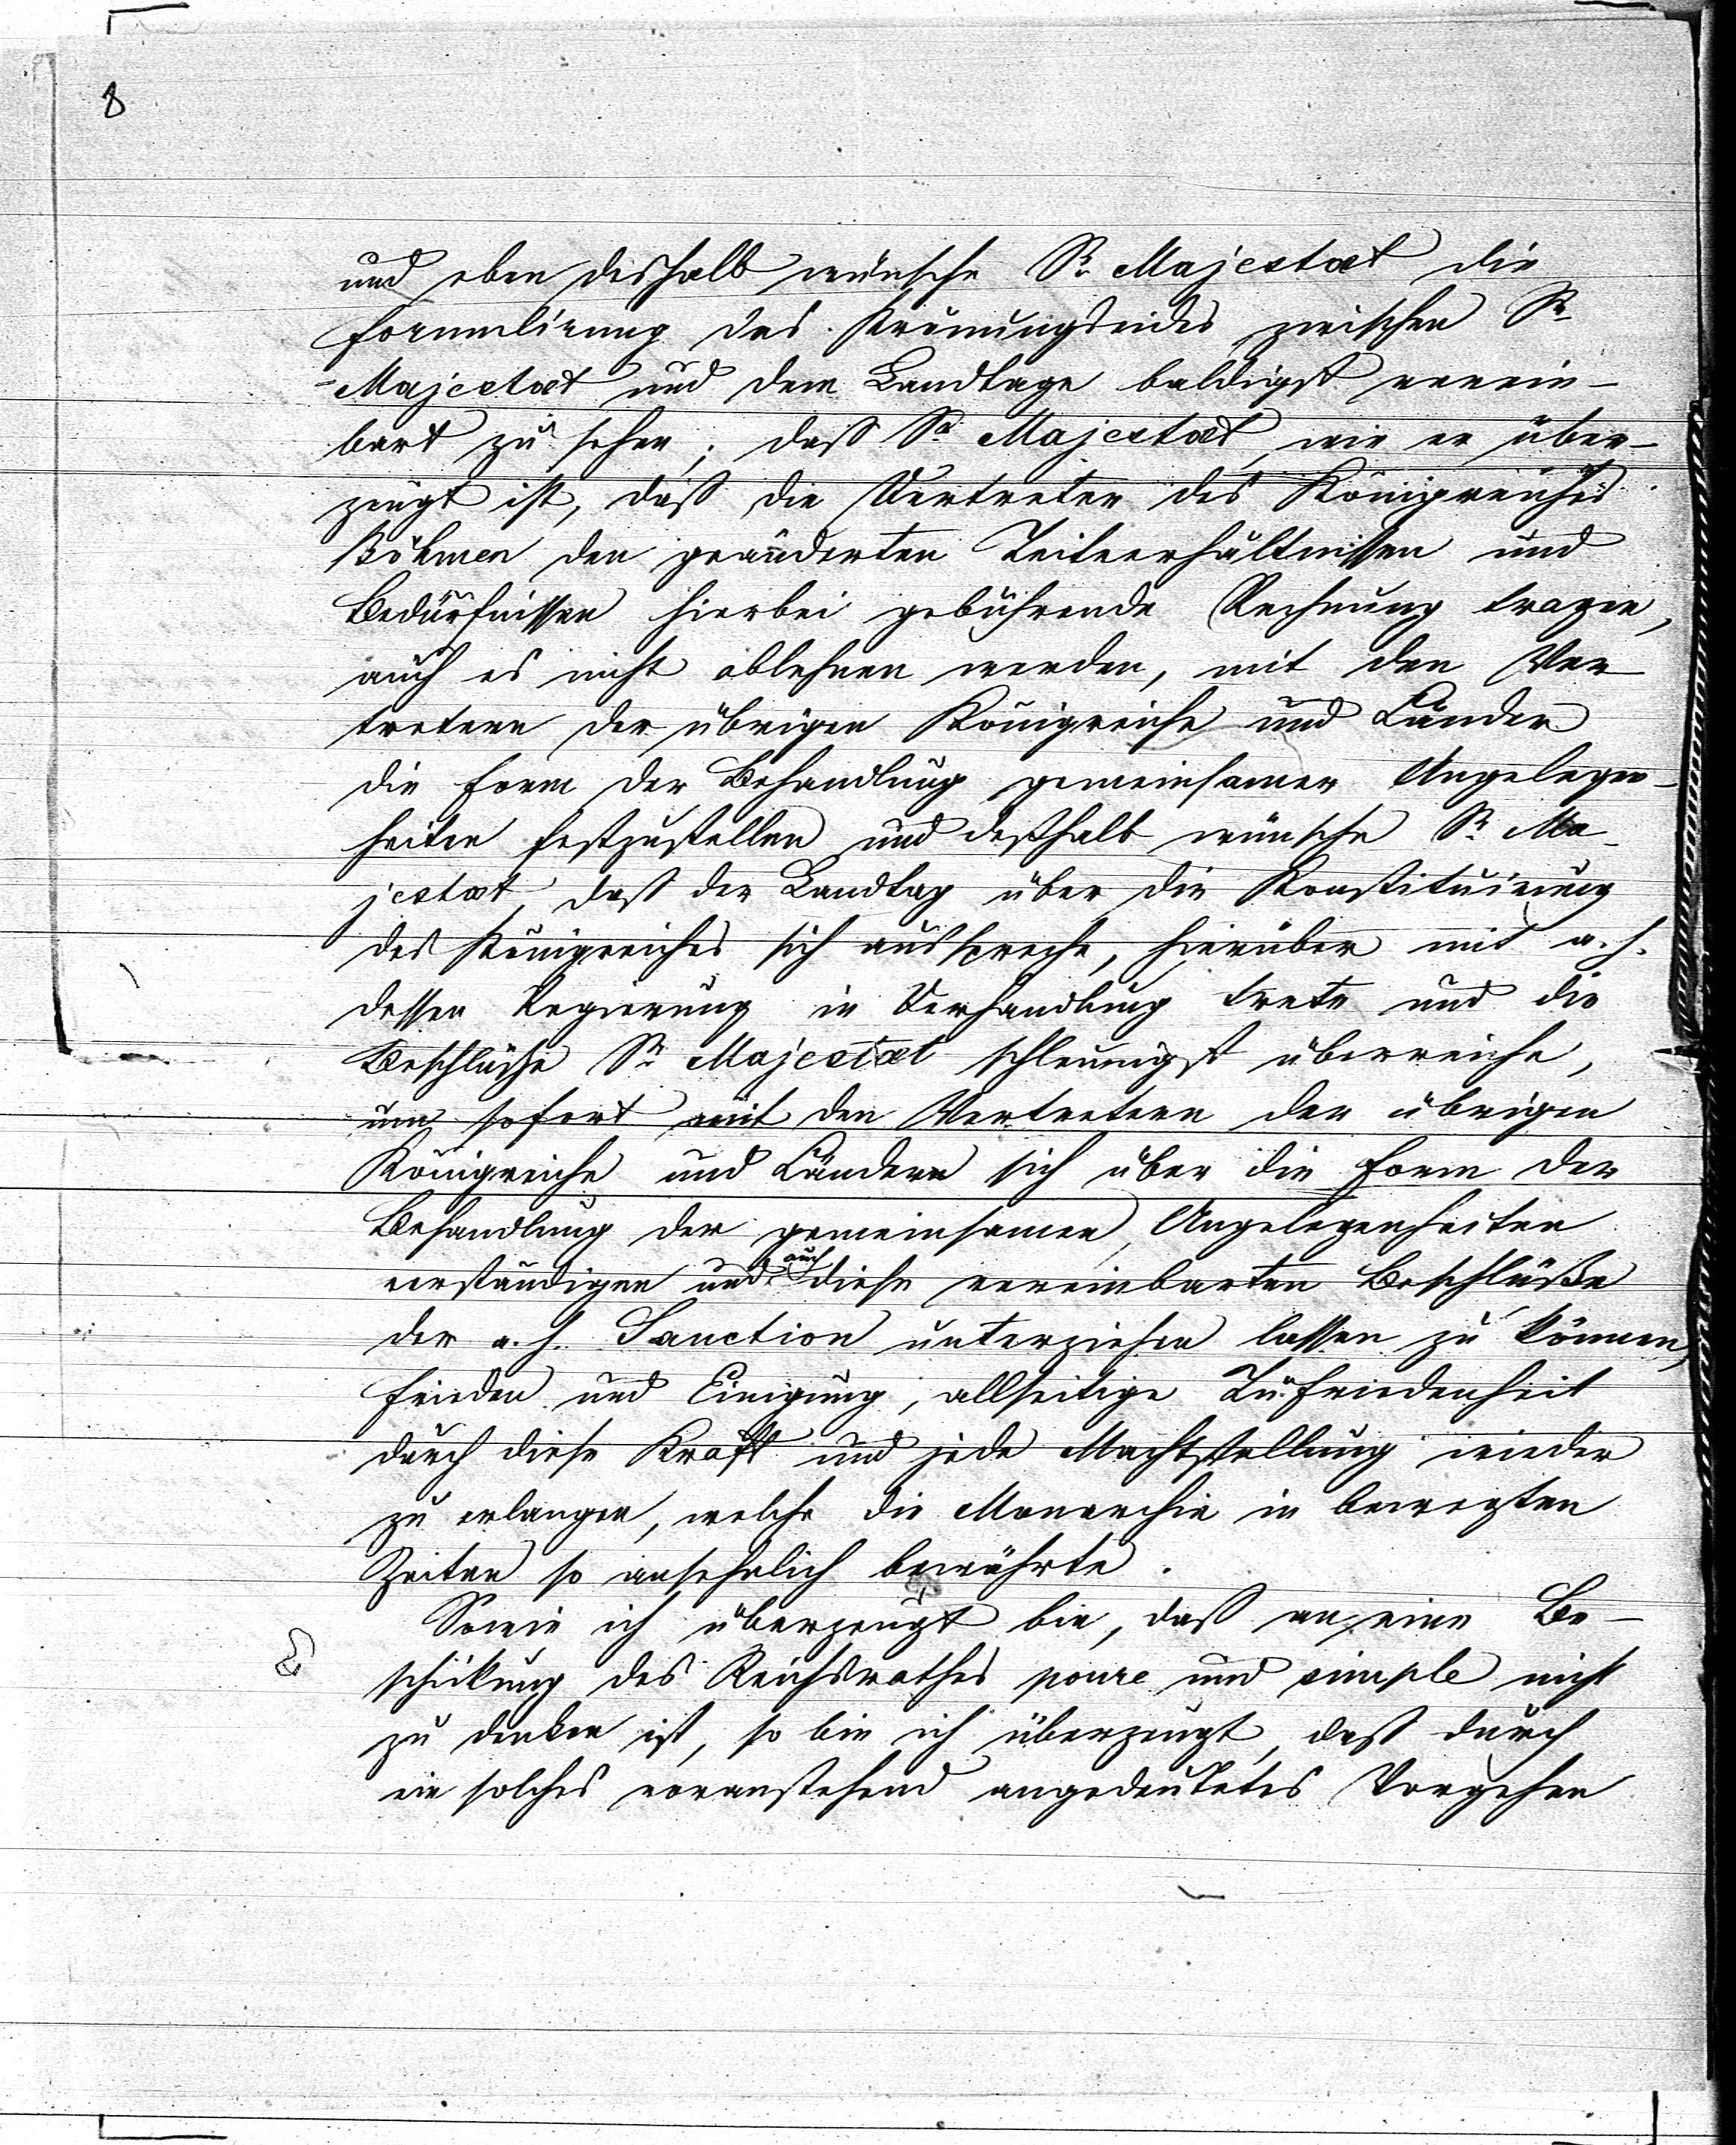 8
und eben deshalb wünsche Sr. Majestaet die
Formulirung des Krönungseides zwischen Sr.
Majestaet und dem Landtage baldigst verein-
bart zu sehen; daß Se. Majestaet, wie er über-
zeugt ist, daß die Vertreter des Königreiches
Böhmen den geänderten Zeitverhältnissen und
Bedürfnissen hierbei gebührende Rechnung tragen,
auch es nicht ablehnen werden, mit den Ver-
tretern der übrigen Königreiche und Länder
die Form der Behandlung gemeinsamer Angelegen-
heiten festzustellen und deßhalb wünsche Se. Ma-
jestaet, daß der Landtag über die Konstituirung
des Königreiches sich ausspreche, hierüber mit a. h.
dessen Regierung in Verhandlung trete und die
Beschlüsse Sr. Majestaet schleunigst überreiche,
um sofort mit den Vertretern der übrigen
Königreiche und Ländern sich über die Form der
Behandlung der gemeinsamen Angelegenheiten
verständigen und auch diese vereinbarten Beschlüße
der a. h. Sanction unterziehen lassen zu können,
Frieden und Einigung, allseitige Zufriedenheit
durch diese Kraft und jede Machtstellung wieder
zu erlangen, welche die Monarchie in bewegten
Zeiten so ansehnlich bewährte.
Sowie ich überzeugt bin, daß an eine Be-
schickung des Reichsrathes poure und simple nicht
zu denken ist, so bin ich überzeugt, daß durch
ein solches voranstehend angedeutetes Vorgehen